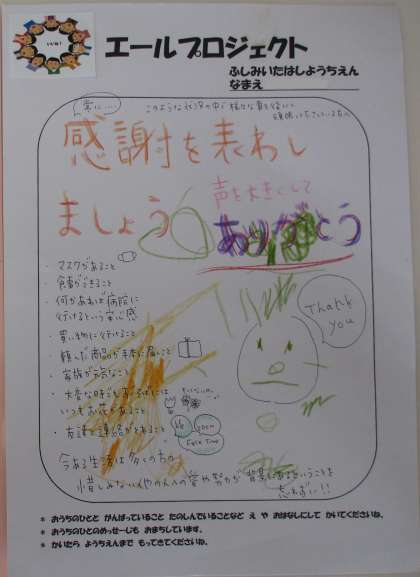 いいね!
エールプロジェクト
ふしみいたはしようちえん
なまえ
常に....
このような状況の中で様々な事を
頑張ってくださっている方へ
感謝を表わし
ましょう
声を大きくして
ありがとう
・マスクがあること
・食事ができること
・何かあれば病院に
行けるという安心感
・買い物に行けること
・頼んだ商品が手元に届くこと
・家族が元気なこと
・大変な時でも
いつもお花があること
・友達と連絡がとれること
zoom
Face Time
Thank
you
今ある生活は多くの方の
惜しみない愛や努力が背景にあるということを
忘れずに!!
* おうちのひとと がんばっていること たのしんでいることなど え や おはなしにして かいてくださいね。
* おうちのひとのめっせーじも おまちしています。
* かいたら ようちえんまで もってきてくださいね。